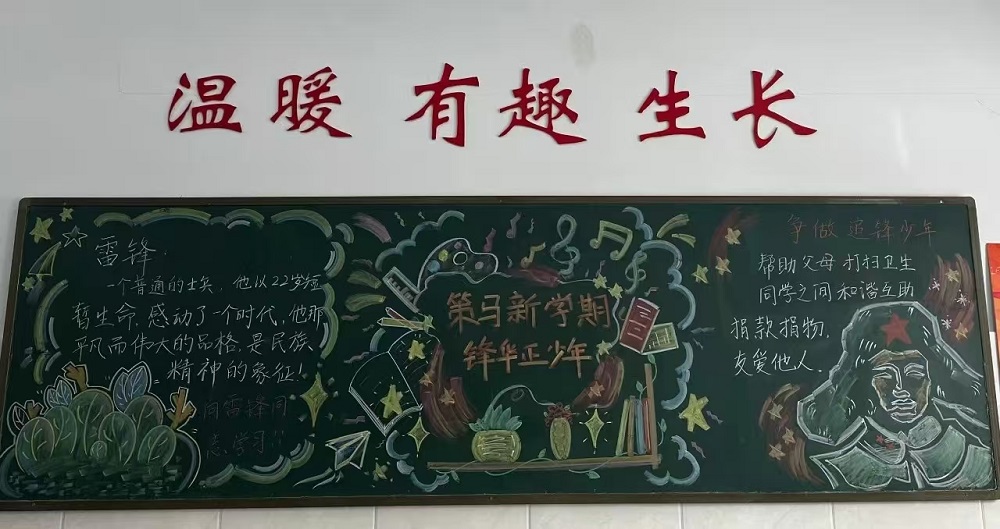 温暖 有趣 生长
雷锋
一个普通的士兵，他以22岁短
暂生命，感动了一个时代，他那
平凡而伟大的品格，是民族
精神的象征！
向雷锋同
志学习！！
策马新学期
锋华正少年
争做追锋少年
帮助父母 打扫卫生
同学之间 和谐互助
捐款捐物，
友爱他人。